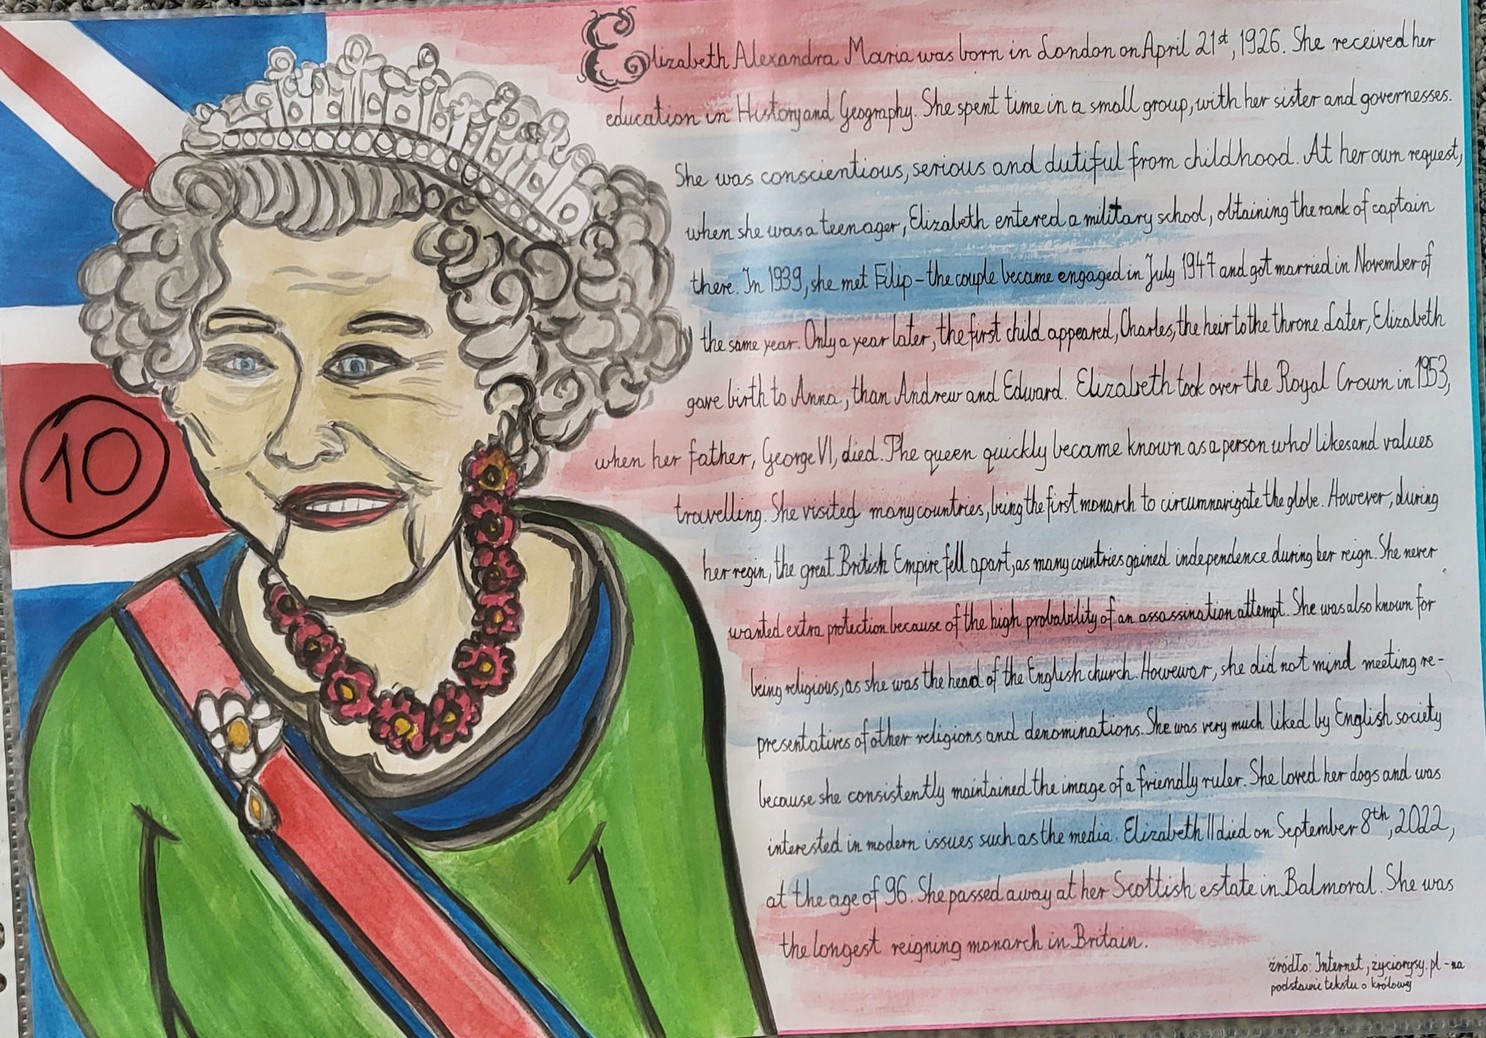 Elizabeth Alexandra Maria was born in London on April 21st, 1926. She received her
education in History and Geography. She spent time in a small group, with her sister and governesses.
She was conscientious, serious and dutiful from childhood. At her own request,
when she was a teenager, Elizabeth entered a military school, obtaining the rank of captain
there. In 1939, she met Filip - the couple became engaged in July 1947 and got married in November of
the same year. Only a year later, the first child appeared, Charles, the heir to the throne. Later, Elizabeth
gave birth to Anna, than Andrew and Edward. Elizabeth took over the Royal Crown in 1953,
when her father, George VI, died. The queen quickly became known as a person who likes and values
travelling. She visited many countries, being the first monarch to circumnavigate the globe. However, during
her regin, the great British Empire fell apart, as many countries gained independence during her reign. She never
wanted extra protection because of the high probability of an assassination attempt. She was also known for
being religious, as she was the head of the English church. Howewer, she did not mind meeting re-
presentatives of other religions and denominations. She was very much liked by English society
because she consistently maintained the image of a friendly ruler. She loved her dogs and was
interested in modern issues such as the media. Elizabeth II died on September 8th, 2022,
at the age of 96. She passed away at her Scottish estate in Balmoral. She was
the longest reigning monarch in Britain.
źródło: Internet, zyciorysy.pl - na
podstawie tekstu o królowej
10